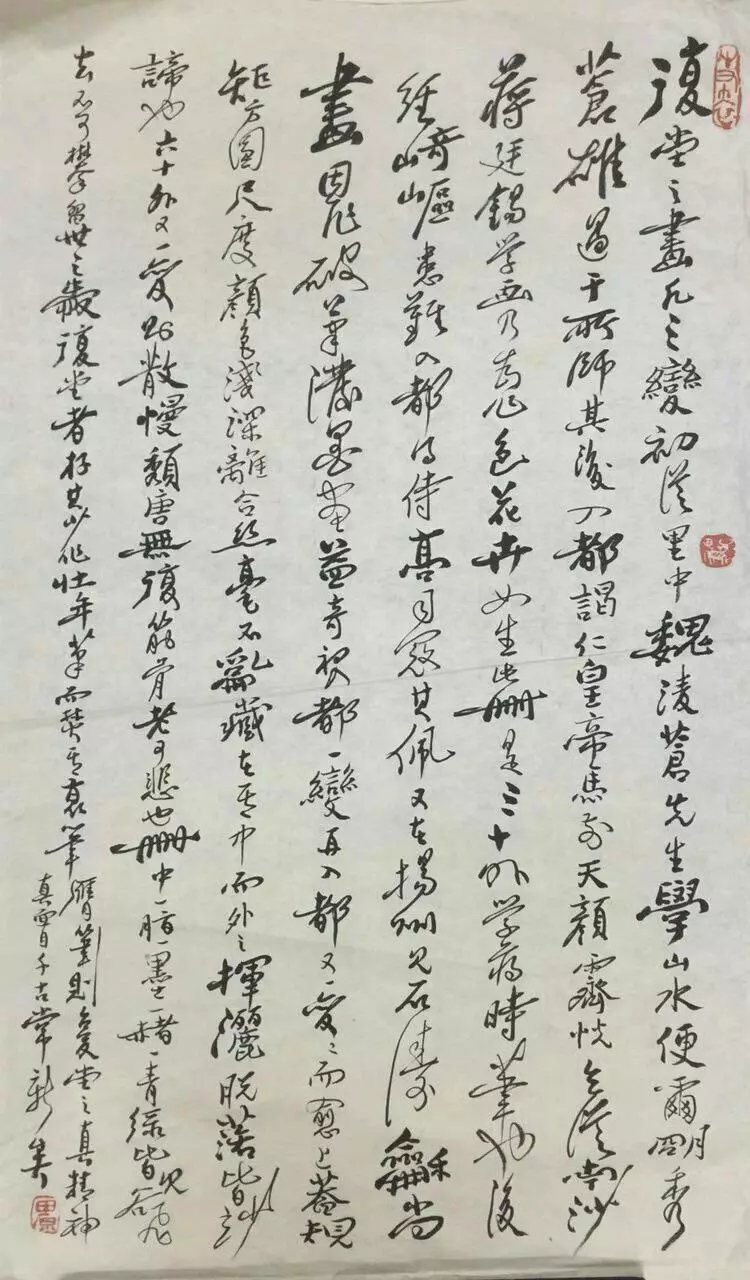 復堂之畫凡三變初從里中魏淩蒼先生學山水便爾明秀
蒼雄過于所師其後入都謁仁皇帝馬前天顏霽悅令從南沙
蔣廷錫学画乃為作色花卉如生此冊是三十外学蔣時筆也後
經崎嶇患難入都得侍高司寇其佩又在揚州見石濤龢尚
畫因作破筆潑墨畫益奇初入都一變再入都又一變變而愈上蓋規
矩方圓尺度顏色淺深離合絲毫不亂藏在其中而外之揮灑脫落皆妙
諦也六十外又一變則散慢頹唐無復筋骨老可悲也冊中一脂一墨一赭一青綠皆欲飛
去不可攀留世之愛復堂者存其少作壯年筆而焚其衰筆贋筆則復堂之真精神
真面目千古常新矣